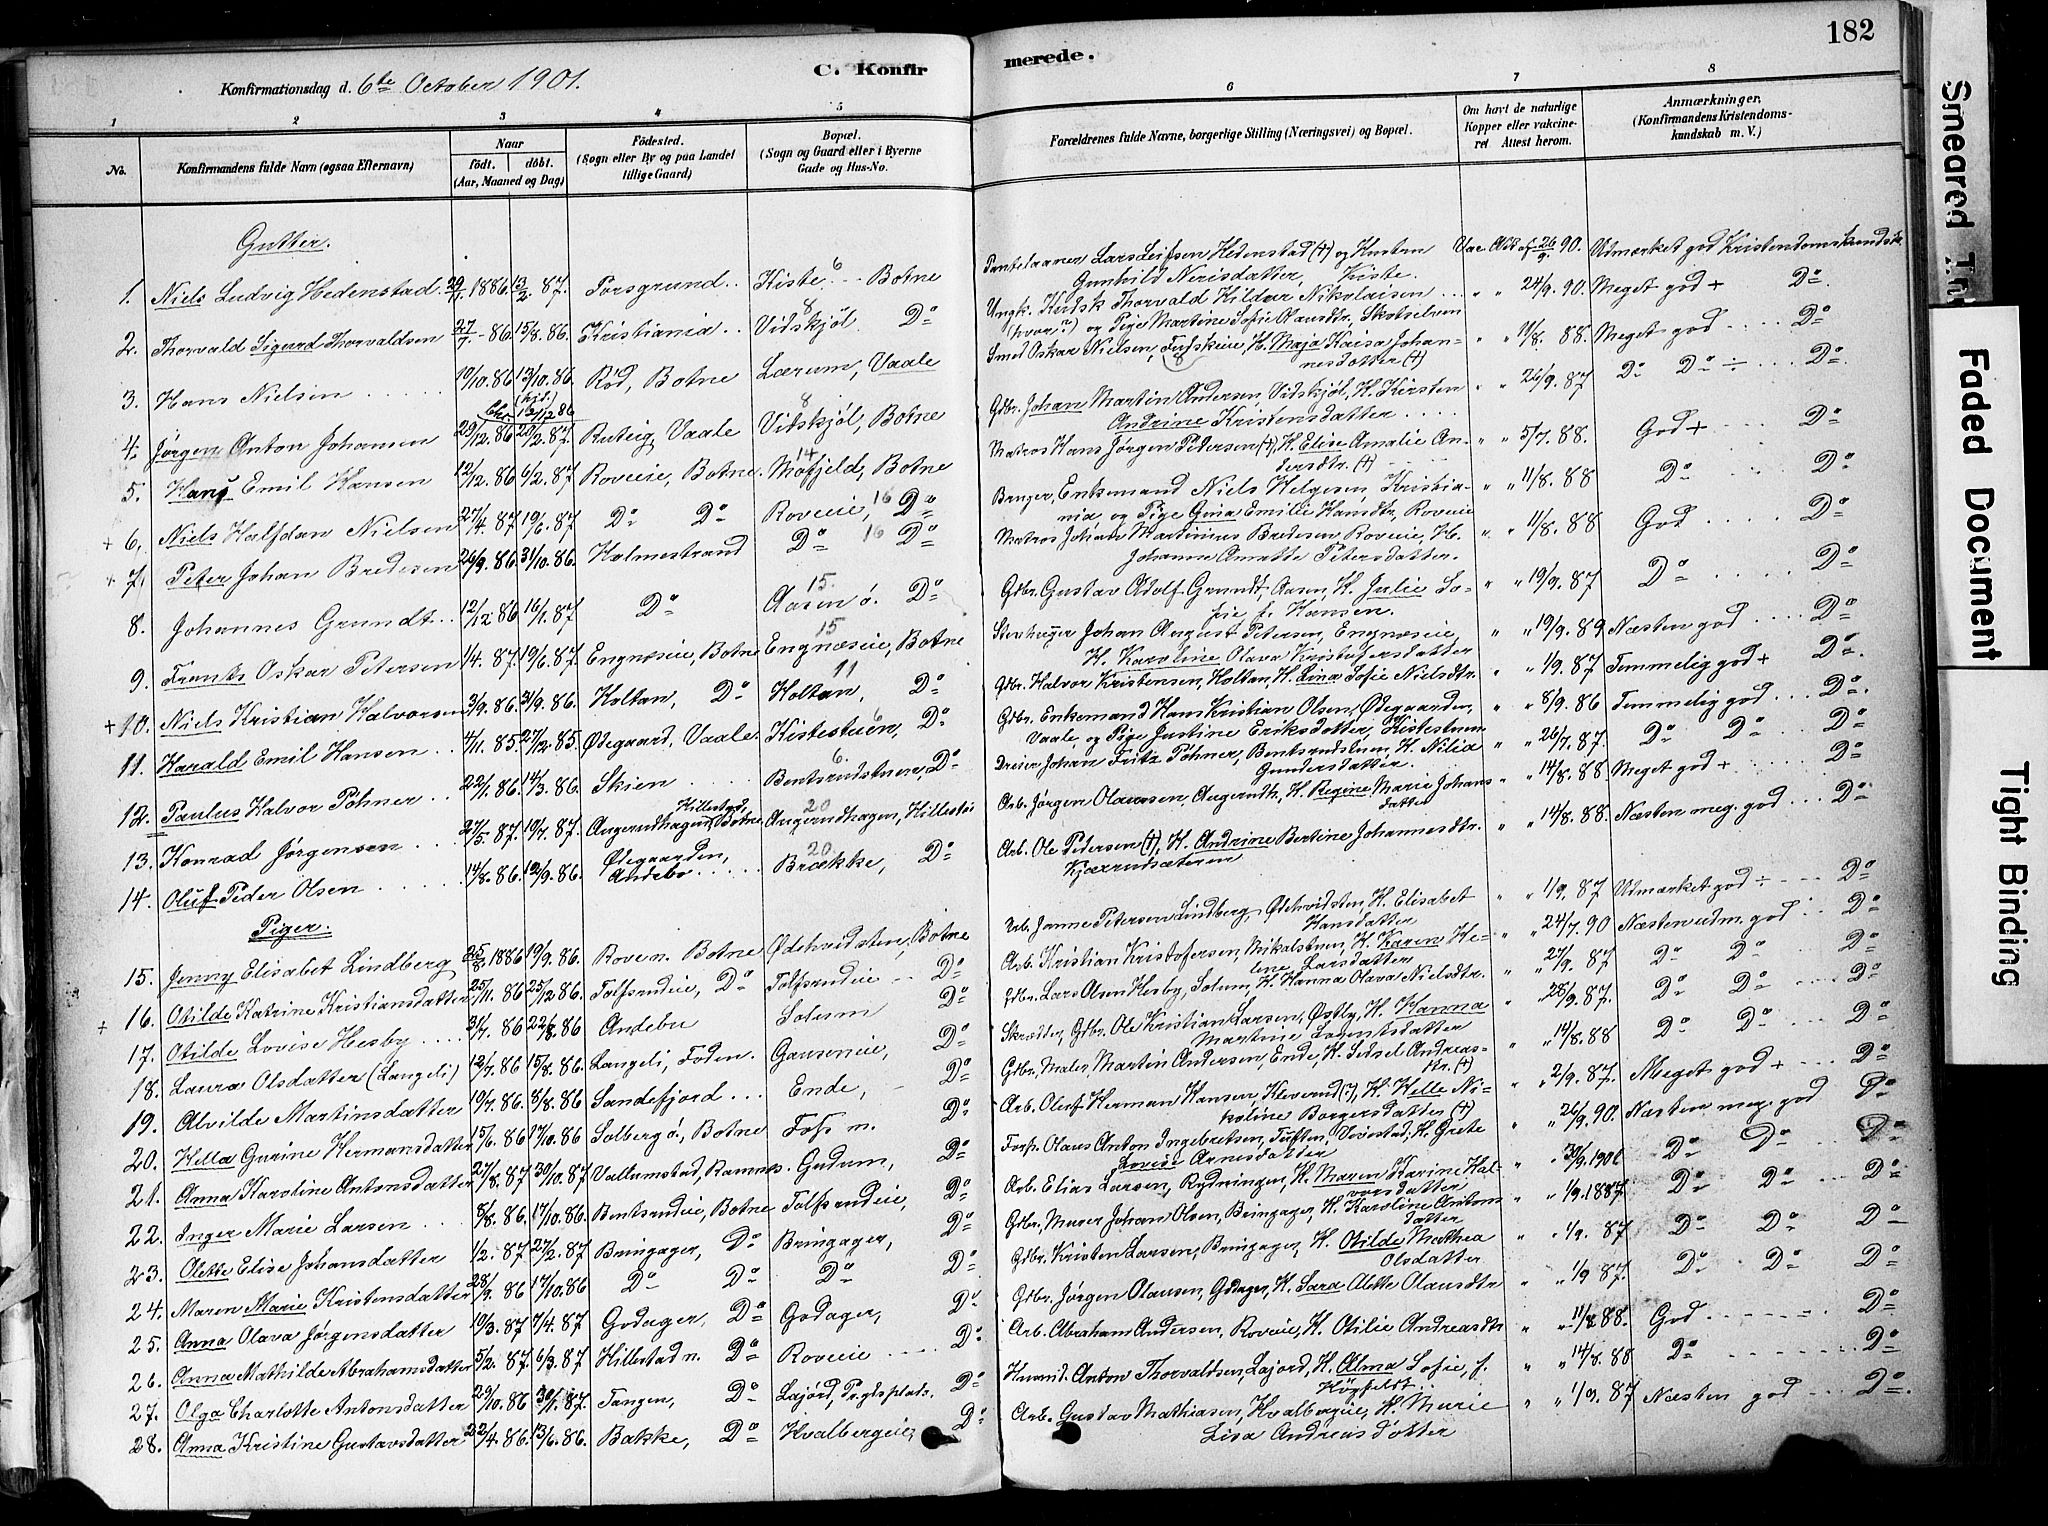 182
C. Konfirmerede.
Konfirmationsdag d. 6te October 1901.
1 2 3 4 5 6 7 8
No. Konfirmandens fulde Navn (ogsaa Efternavn) Naar födt. döbt. (Aar, Maaned og Dag) Födested. (Sogn eller By og paa Landet tillige Gaard) Bopæl. (Sogn og Gaard eller i Byerne Gade og Hus-No. Forældrenes fulde Navne, borgerlige Stilling (Næringsvei) og Bopæl. Om havt de naturlige Kopper eller vakcineret Attest herom. Anmærkninger. (Konfirmandens Kristendomskundskab m. V.)
Gutter.
1. Niels Ludvig Hedenstad 29/11 1886 13/2 87. Porsgrund Kiste 6 Botne Lars Leifsen Hedenstad (+) og Hustru Gunhild Nerisdatter, Kiste. 26/9 90. Udmærket god Kristendomskundsk.
2. Thorvald Sigurd Thorvaldsen 27/7 86 15/8. 86. Kristiania Vidskjøl 8 Do Ungk. Thorvald Hildar Nikolaisen (hvor?) og Pige Martine Sofie Olausdtr, Skotselven " " 24/9. 90. Meget god + Do
3. Hans Nielsen 19/10. 86. 13/10. 86 (hjd.) Rød, Botne Lærum, Vaale Smed Oskar Nielsen, H. Maja Kaisa Johannesdatter (+) " " 11/8. 88. Meget god Do
4. Jørgen Anton Johansen 29/12. 86. 20/2. 87. Ruteig, Vaale Vidskjøl, Botne 8 Gdbr. Johan Martin Andersen, Vidskjøl, H. Kirsten Andrine Kristensdatter " " 26/9. 87 Do Do ÷ Do
5. Hans Emil Hansen 12/12. 86 6/2. 87 Roveie, Botne Mofjeld, Botne 14 Matros Hans Jørgen Pedersen (+), H. Elise Amalie Andersdtr. (+) " " 5/7. 88. God + Do
+ 6. Niels Halfdan Nielsen 27/4. 87 19/6. 87 Do Do Roveie, 16 Do Enkemand Niels Helgesen, Kristiania, og Pige Gina Emilie Hansdtr, Roveie " " 11/8. 88 Do Do
+ 7. Peter Johan Bredesen 24/9. 86. 31/10. 86. Holmestrand Do 16 Do Matros Johan Martinius Bredesen, Roveie, H. Johanne Annette Petersdatter. " " 11/8. 88 God Do
8. Johannes Grundt 12/12 86 16/1. 87 Do Aasen ø. 15. Do Gdbr. Gustav Adolf Grundt, Aasen, H. Julie Sofie f. Hansen. " " 19/9. 87 Do Do
9. Frants Oskar Petersen 1/4. 87. 19/6. 87. Engnæseie, Botne Engnæseie, Botne 15 Stenhugger Johan August Petersen, Engnæseie, H. Karoline Olava Kristofersdatter " " 19/9. 89 Næsten god Do
+ 10. Niels Kristian Halvorsen 3/9. 86. 31/9. 86. Holtan, Do Holtan, 11 Do Gdbr. Halvor Kristensen, Holtan, H. Lina Sofie Nielsdtr. " 1/9. 87 Temmelig god + Do
11. Harald Emil Hansen 4/11. 85. 27/12. 85. Ødegaard, Vaale. Kistestuen, 6 Do Gdbr. Enkemand Hans Kristian Olsen, Ødegaarden, Vaale, og Pige Justine Eriksdatter, Kistestuen " " 8/9. 86 Temmelig god Do
12. Paulus Halvor Pöhner 22/1. 86. 14/3. 86. Skien Bentsrudstuen, 6. Do Dreier Johan Fritz Pöhner, Bentsrudstuen, H. Nilia Gundersdatter. " " 26/7. 87. Do Do Do
13. Konrad Jørgensen 27/5. 87. 19/7. 87. Angerudhagen, Hillestad, Botne Angerudhagen, Hillestad 20 Arb. Jørgen Olaussen, Angerudh., H. Regine Marie Johansdatter " " 14/8. 88 Meget god + Do
14. Oluf Peder Olsen 14/8. 86. 12/9. 86. Ødegaarden, Andebo Brække, 20 Do Arb. Ole Pedersen (+), H. Andrine Bertine Johannesdtr. Kjærrudsæteren " " 14/8. 88. Næsten meg. god Do
Piger.
15. Jenny Elisabet Lindberg 25/8. 1886 19/9. 86. Rove n. Botne Ødehvidsten, Botne Arb. Janne Petersen Lindberg, Ødehvidsten, H. Elisabet Hansdatter " " 1/9. 87 Udmærket god ÷ Do
+ 16. Otilde Katrine Kristiansdatter 25/11. 86 25/12 86. Tolfsrudeie, Do Tolfsrudeie Do Arb. Kristian Kristofersen, Mikalstuen, H. Karen Helene Larsdatter " " 24/7. 90 Næsten udm. god Do
17. Otilde Lovise Hesby 31/7. 86 22/8. 86 Andebu Solum Do Gdbr. Lars Olsen Hesby, Solum, H. Hanna Olava Nielsdtr. " " 27/9. 87 Do Do Do
18. Laura Olsdatter (Langeli) 12/7. 86 15/8. 86 Langeli, Foden. Gauseneie, Do Skrædder, Gdbr. Ole Kristian Larsen, Østby, H. Hanna Martine Larentsdatter " " 28/9. 87. Do Do Do
19. Alvilde Martinsdatter 19/7. 86. 8/8. 86 Sandefjord Ende, Do Gdbr., Maler, Martin Andersen, Ende, H. Sidsel Andreasdtr. (+) " " 14/8. 88 Do Do Do
20. Hella Gurine Hermansdatter 15/6. 86 17/10. 86 Solberg ø., Botne Foss n. Do Arb. Olaf Herman Hansen, Kleverud (?), H. Helle Nikoline Borgersdatter (+) " " 2/9. 87. Meget god + Do
21. Anna Karoline Antonsdatter 27/8. 87 30/10. 87 Vallumstad, Ramnes. Gudum, Do Forp. Olaus Anton Ingebretsen, Tuften, Vivestad, H. Grete Lovise Arnesdatter " " 26/9. 90. Næsten meg. god Do
22. Inger Marie Larsen 5/8. 86. 17/10. 86 Bentsrudeie, Botne Tolfsrudeie, Do Arb. Elias Larsen, Rydningen, H. Maren Karine Halvorsdatter " 30/9. 1901 Do Do Do
23. Olette Elise Johansdatter 1/2. 87 27/2. 87 Bringager, Do Bringager, Do Gdbr., Murer Johan Olsen, Bringager, H. Karoline Antonsdatter " " 1/9. 1887. Do Do Do
24. Maren Marie Kristensdatter 28/9. 86 17/10. 86 Do Do Do Do Gdbr. Kristen Larsen, Bringager, H. Otilde Mathea Olsdatter " " 1/9. 87 Do Do Do
25. Anna Olava Jørgensdatter 19/3. 87 7/4. 87 Godager, Do Godager, Do Gdbr. Jørgen Olausen, Godager, H. Sara Alette Olausdtr " " 1/9 87. Do Do Do
26. Anna Mathilde Abrahamsdatter 5/2. 87. 6/3. 87 Hillestad n. Do Roveie Do Arb. Abraham Andersen, Roveie, H. Otilie Andreasdtr " " 11/8 88. God Do
27. Olga Charlotte Antonsdatter 29/10. 86 30/1. 87. Tangen, Do Lajord, Prgdsplads. Do Husmd. Anton Thorvaldsen, Lajord, H. Alma Sofie, f. Högfeldt. " " 14/8. 88 Do Do
28. Anna Kristine Gustavsdatter 22/4. 86. 13/6. 86. Bakke, Do Hvalbergeie, Do Arb. Gustav Mathiasen, Hvalbergeie, H. Marie Lisa Andreasdotter " " 1/9. 87 Næsten god Do
Smeared
Faded Document
Tight Binding